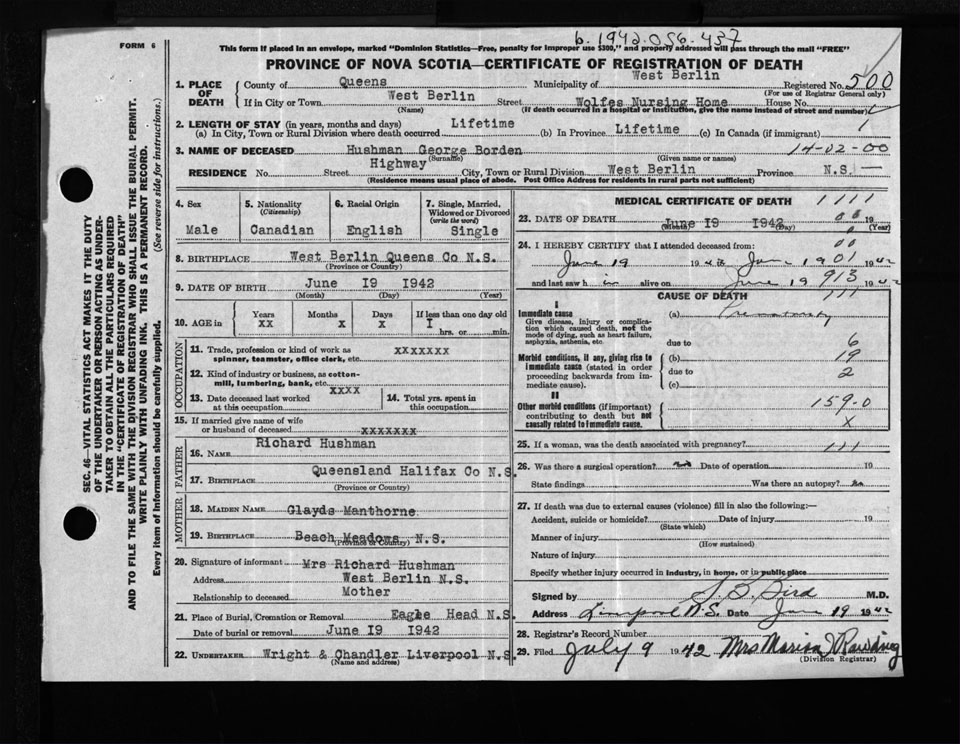 b. 1942.056.437
FORM 6
This form if placed in an envelope, marked "Dominion Statistics—Free, penalty for improper use $300," and properly addressed will pass through the mail "FREE"
PROVINCE OF NOVA SCOTIA—CERTIFICATE OF REGISTRATION OF DEATH
SEC. 46—VITAL STATISTICS ACT MAKES IT THE DUTY
OF THE UNDERTAKER OR PERSON ACTING AS UNDER-
TAKER TO OBTAIN ALL THE PARTICULARS REQUIRED
IN THE "CERTIFICATE OF REGISTRATION OF DEATH"
AND TO FILE THE SAME WITH THE DIVISION REGISTRAR WHO SHALL ISSUE THE BURIAL PERMIT.
WRITE PLAINLY WITH UNFADING INK. THIS IS A PERMANENT RECORD.
Every item of information should be carefully supplied. (See reverse side for instructions.)
1. PLACE OF DEATH County of Queens Municipality of West Berlin Registered No. 500
(For use of Registrar General only)
If in City or Town West Berlin Street Wolfes Nursing Home House No.
(Name) (If death occurred in a hospital or institution, give the name instead of street and number)
2. LENGTH OF STAY (in years, months and days) Lifetime 1
(a) In City, Town or Rural Division where death occurred (b) In Province Lifetime (c) In Canada (if immigrant)
3. NAME OF DECEASED Hushman George Borden 14-02-00
(Surname) (Given name or names)
RESIDENCE No. Street Highway City, Town or Rural Division West Berlin Province N.S.
(Residence means usual place of abode. Post Office Address for residents in rural parts not sufficient)
4. Sex Male
5. Nationality (Citizenship) Canadian
6. Racial Origin English
7. Single, Married, Widowed or Divorced (write the word) Single
8. BIRTHPLACE West Berlin Queens Co N.S.
(Province or Country)
9. DATE OF BIRTH June I9 I942
(Month) (Day) (Year)
10. AGE in Years Months Days If less than one day old
xx x x I hrs. or min.
OCCUPATION
11. Trade, profession or kind of work as spinner, teamster, office clerk, etc. xxxxxxx
12. Kind of industry or business, as cotton-mill, lumbering, bank, etc.
13. Date deceased last worked at this occupation xxxx
14. Total yrs. spent in this occupation
15. If married give name of wife or husband of deceased xxxxxxx
FATHER
16. NAME Richard Hushman
17. BIRTHPLACE Queensland Halifax Co N.S.
(Province or Country)
MOTHER
18. MAIDEN NAME Glayds Manthorne
19. BIRTHPLACE Beach Meadows N.S.
(Province or Country)
20. Signature of informant Mrs Richard Hushman
Address West Berlin N.S.
Relationship to deceased Mother
21. Place of Burial, Cremation or Removal Eagle Head N.S.
Date of burial or removal June I9 I942
22. UNDERTAKER Wright & Chandler Liverpool N.S.
(Name and address)
MEDICAL CERTIFICATE OF DEATH 1111
23. DATE OF DEATH June I9 I942 19
(Month) (Day) (Year)
24. I HEREBY CERTIFY that I attended deceased from: 00
June 19 1942 to June 19 1942 01
and last saw him alive on June 19 1942 913
CAUSE OF DEATH 111
I
Immediate cause
Give disease, injury or complication which caused death, not the mode of dying, such as heart failure, asphyxia, asthenia, etc.
(a) Prematurity
due to 6
Morbid conditions, if any, giving rise to immediate cause (stated in order proceeding backwards from immediate cause).
(b) 19
due to 2
(c)
II
Other morbid conditions (if important) contributing to death but not causally related to immediate cause.
159.0
x
25. If a woman, was the death associated with pregnancy? 111
26. Was there a surgical operation? no Date of operation 19
State findings Was there an autopsy? no
27. If death was due to external causes (violence) fill in also the following:—
Accident, suicide or homicide? Date of injury 19
(State which)
Manner of injury
(How sustained)
Nature of injury
Specify whether injury occurred in industry, in home, or in public place
Signed by J. G. Bird M.D.
Address Liverpool N.S. Date June 19 1942
28. Registrar's Record Number
29. Filed July 9 1942 Mrs Marion
(Division Registrar)